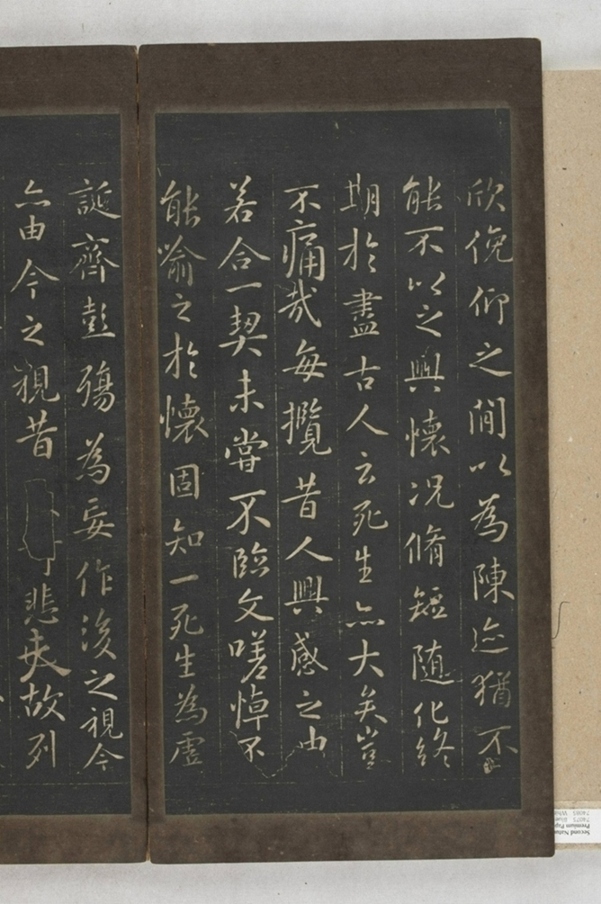 欣俛仰之間以為陳迹猶不
能不以之興懷況脩短隨化終
期於盡古人云死生亦大矣豈
不痛哉每攬昔人興感之由
若合一契未嘗不臨文嗟悼不
能喻之於懷固知一死生為虛
誕齊彭殤為妄作後之視今
亦由今之視昔悲夫故列